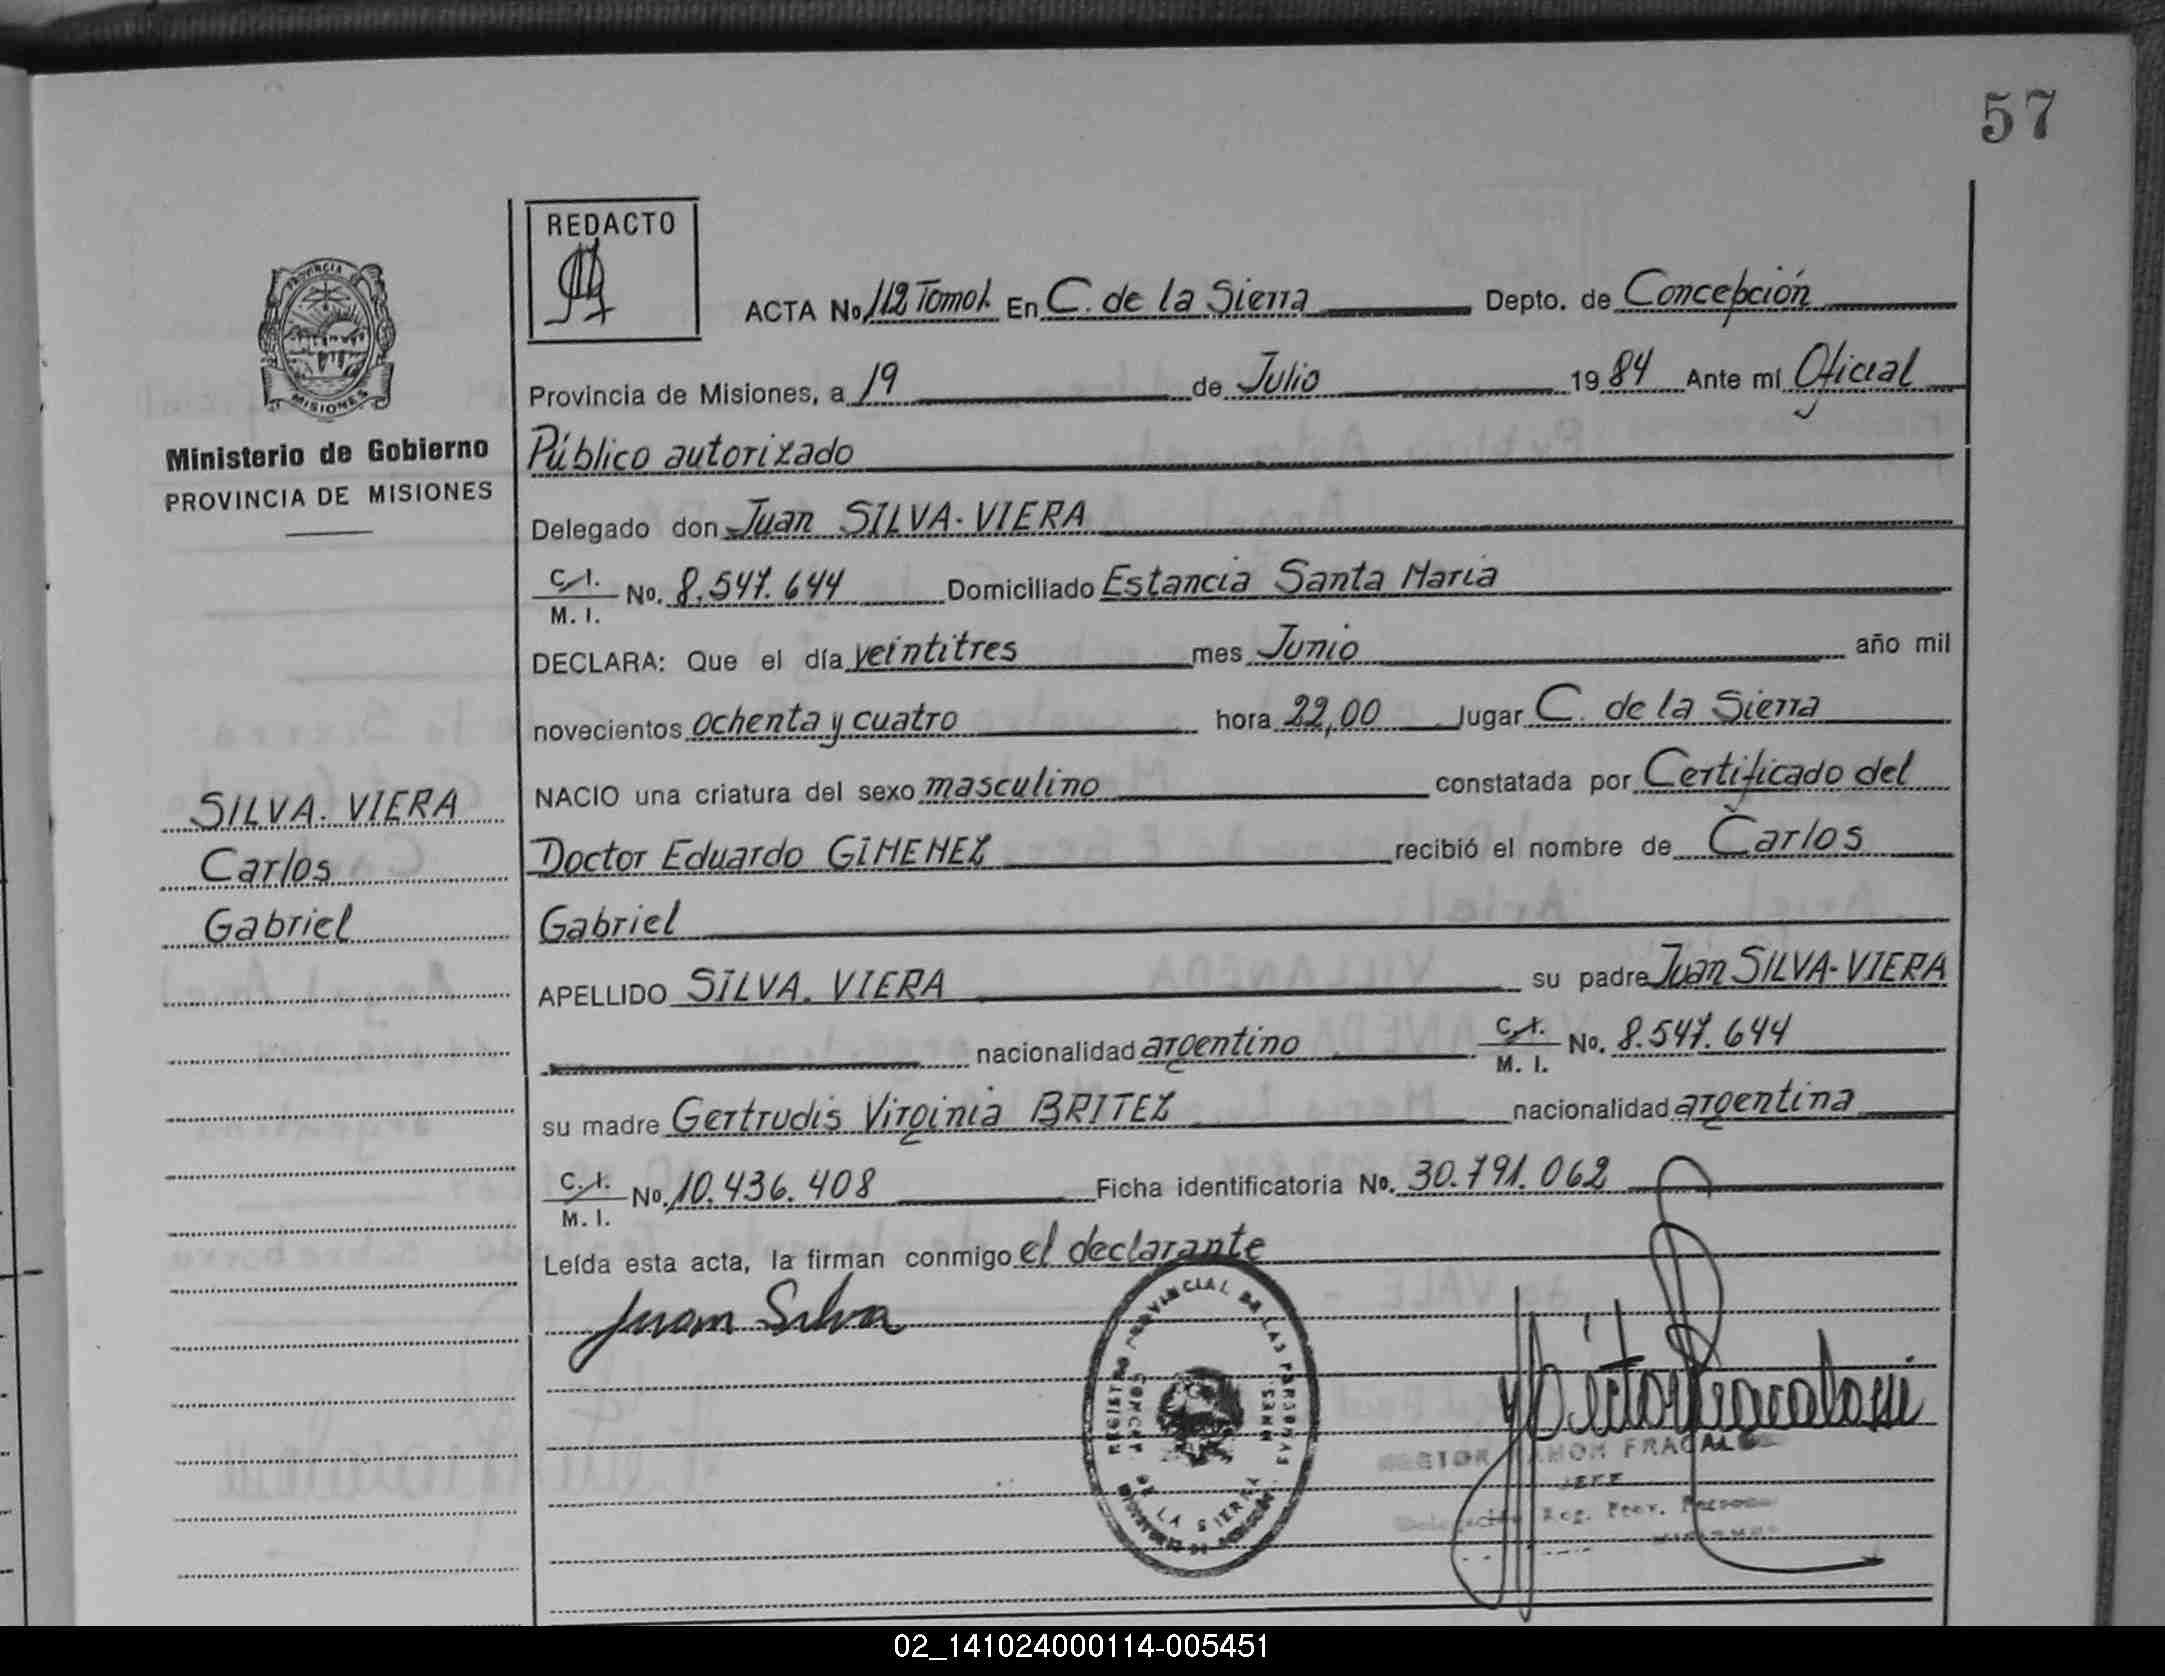 57
REDACTO
PROVINCIA DE
MISIONES
Ministerio de Gobierno
PROVINCIA DE MISIONES
ACTA No. 112 Tomo 1. En C. de la Sierra Depto. de Concepción
Provincia de Misiones, a 19 de Julio 1984 Ante mí Oficial
Público autorizado
Delegado don Juan SILVA-VIERA
C.I. M.I. No. 8.547.644 Domiciliado Estancia Santa Maria
DECLARA: Que el día veintitres mes Junio año mil
novecientos ochenta y cuatro hora 22,00 lugar C. de la Sierra
NACIO una criatura del sexo masculino constatada por Certificado del
Doctor Eduardo GIMENEZ recibió el nombre de Carlos
Gabriel
APELLIDO SILVA. VIERA su padre Juan SILVA-VIERA
nacionalidad argentino C.I. M.I. No. 8.547.644
su madre Gertrudis Virginia BRITEZ nacionalidad argentina
C.I. M.I. No. 10.436.408 Ficha identificatoria No. 30.791.062
Leída esta acta, la firman conmigo el declarante
SILVA. VIERA
Carlos
Gabriel
Juan Silva
REGISTRO PROVINCIAL DE LAS PERSONAS
CONCEP. DE LA SIERRA MNES.
RAMON FRACAL
JEFE
Reg. Prov.
02_141024000114-005451